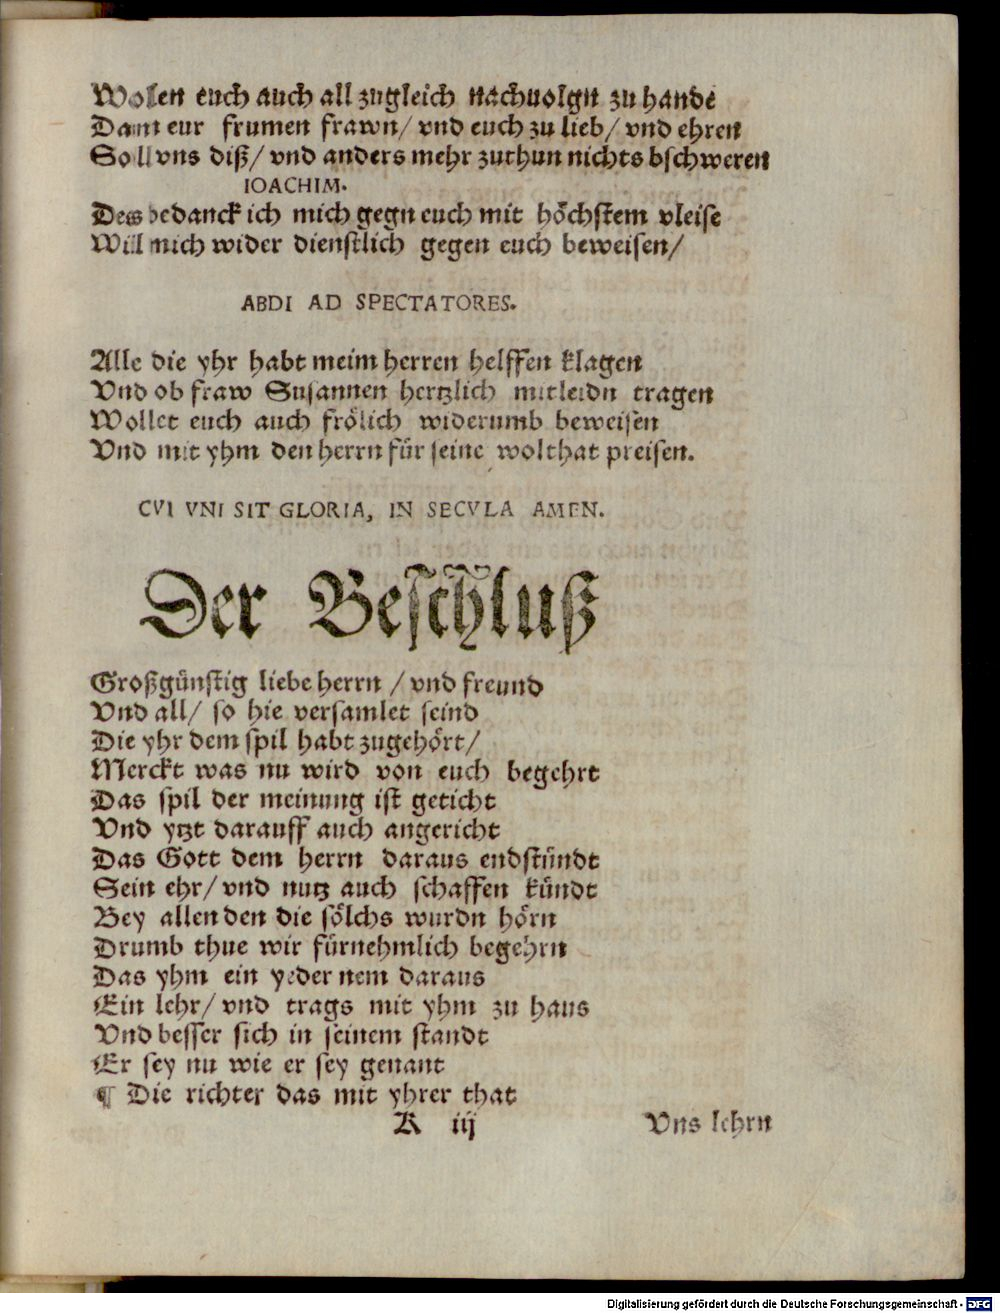 Wollen euch auch all zugleich nachuolgn zu hande
Dann eur frumen frawn/ vnd euch zu lieb/ vnd ehren
Soll vns diß/ vnd anders mehr zuthun nichts bschweren
IOACHIM.
Des bedanck ich mich gegn euch mit höchstem vleise
Will mich wider dienstlich gegen euch beweisen/
ABDI AD SPECTATORES.
Alle die yhr habt meim herren helffen klagen
Vnd ob fraw Susannen hertzlich mitleidn tragen
Wollet euch auch frölich widerumb beweisen
Vnd mit yhm den herrn für seine wolthat preisen.
CVI VNI SIT GLORIA, IN SECVLA AMEN.
Der Beschluß
Großgünstig liebe herrn / vnd freund
Vnd all/ so hie versamlet seind
Die yhr dem spil habt zugehört/
Merckt was nu wird von euch begehrt
Das spil der meinung ist geticht
Vnd ytzt darauff auch angericht
Das Gott dem herrn daraus endstündt
Sein ehr/ vnd nutz auch schaffen kündt
Bey allen den die sölchs wurdn hörn
Drumb thue wir fürnehmlich begehrn
Das yhm ein yeder nem daraus
Ein lehr/ vnd trags mit yhm zu haus
Vnd besser sich in seinem standt
Er sey nu wie er sey genant
¶ Die richter das mit yhrer that
K iij Vns lehrn
Digitalisierung gefördert durch die Deutsche Forschungsgemeinschaft - DFG